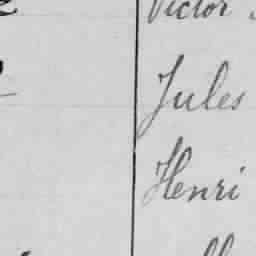 Victor
Jules
Henri